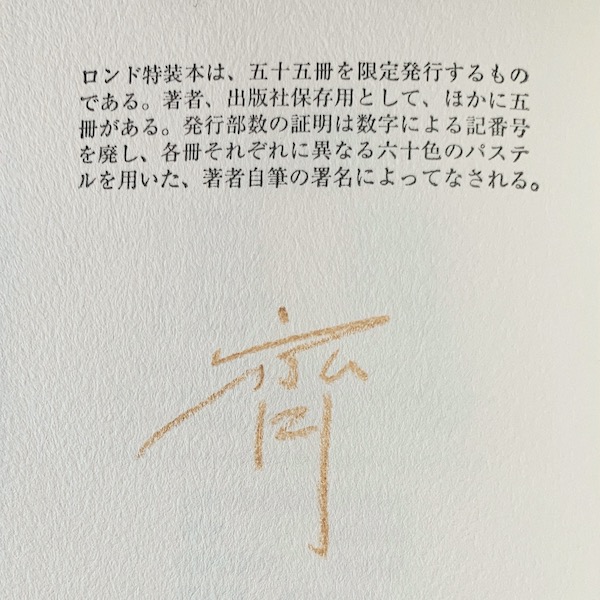 ロンド特装本は、五十五冊を限定発行するもの
である。著者、出版社保存用として、ほかに五
冊がある。発行部数の証明は数字による記番号
を廃し、各冊それぞれに異なる六十色のパステ
ルを用いた、著者自筆の署名によってなされる。
齊